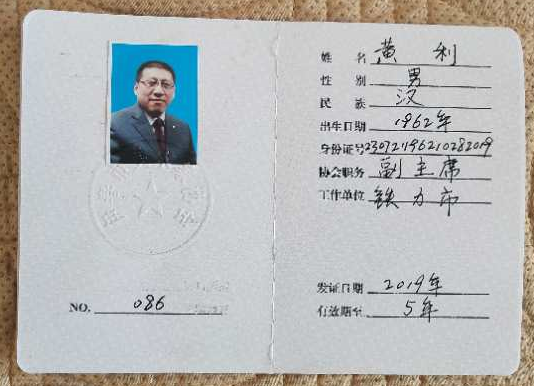 姓 名 黄 利
性 别 男
民 族 汉
出生日期 1962年
身份证号230721196210282019
协会职务 副主席
工作单位 铁力市
发证日期 2019年
有效期至 5年
NO. 086